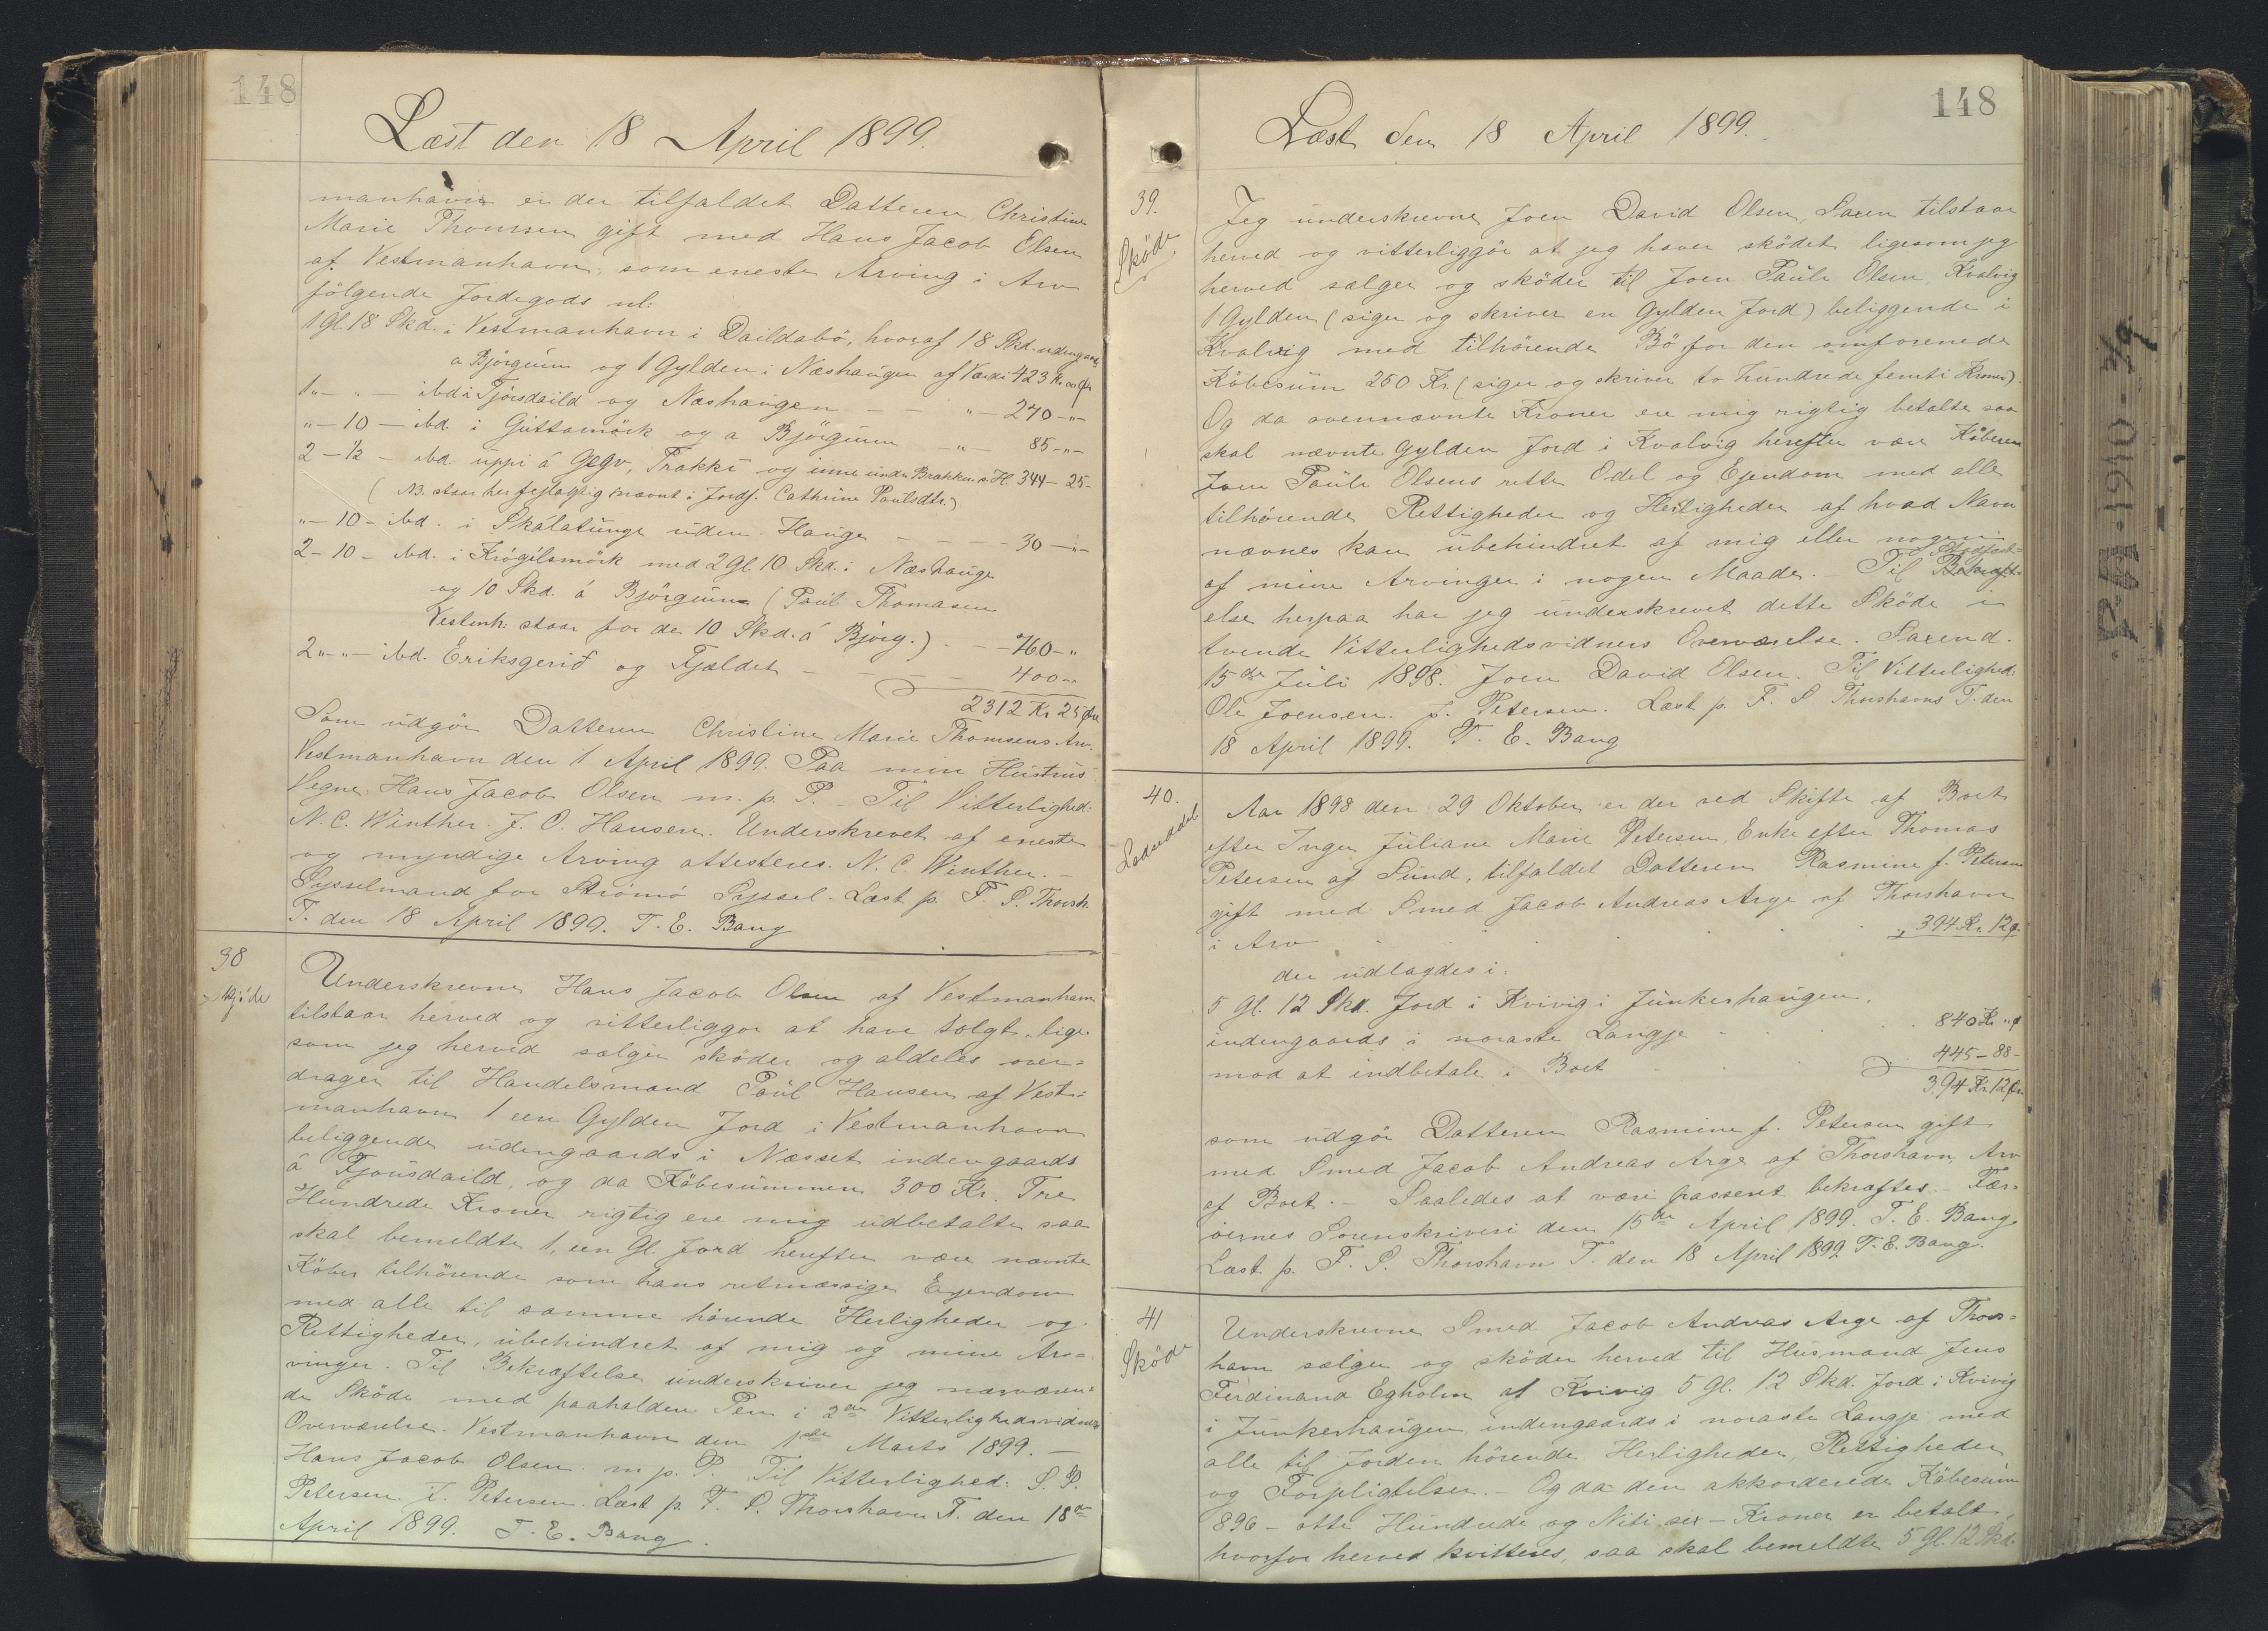 148
Læst den 18 April 1899.
manhavn er der tilfaldet Datteren Christine
Marie Thomsen gift med Hans Jacob Olsen
af Vestmanhavn, som eneste Arving i Arv
följgende Jordegods nl:
1 Gl. 18 Skd. i Vestmanhavn i Daildabö, hvoraf 18 Skd. udengaards
a Björgum og 1 Gylden i Næshaugen af Værdi 423 Kr. " Ør
1 " - " - ibd i Fjórsdaild og Næshaugen - - " - 270 - " -
" - 10 - ibd. i Guttamörk og a Björgum - " - 85 - " -
2 - 1/2 - ibd. uppi á Gegv, Trakki og inni under Brækken i H. 344 - 25 -
(NB. staar her fejlagtig nævnt i Jordf. Cathrine Poulsdtr.)
" - 10 - ibd. i Skálatunge uden Hauge - - - - 30 - " -
2 - 10 - ibd. i Krógilsmörk med 2 Gl. 10 Skd. i Næshauge
og 10 Skd. á Björgum (Poul Thomasen
Vestmh: staar for de 10 Skd. á Björg.) - - 760 - "
2 " - " - ibd. Eriksgerið og Fjældet - - - - 400 "
2312 Kr 25 Øre
Som udgör Datteren Christine Marie Thomsens Arv.
Vestmanhavn den 1 April 1899. Paa min Hustrus
Vegne. Hans Jacob Olsen m. p. P. Til Vitterlighed:
N. C. Winther. J. O. Hansen. Underskrevet af eneste
og myndige Arving attesteres. N. C. Winther. -
Sysselmand for Strömö Syssel. Læst p. F. S. Thorsh.
T. den 18 April 1899. T. E. Bang
38
Skjöde
Underskrevne Hans Jacob Olsen af Vestmanhavn
tilstaar herved og vitterliggör at have solgt, lige-
som jeg herved sælger sköder og aldeles over=
drager til Handelsmand Poul Hansen af Vest=
manhavn 1 een Gylden Jord i Vestmanhavn
beliggende udengaards i Næsset indengaards
á Fjóusdaild, og da Köbesummen 300 Kr. Tre
Hundrede Kroner rigtig ere mig udbetalte saa
skal bemeldte 1, een Gl. Jord herefter være nævnte
Köber tilhörende som hans retmæssige Ejendom
med alle til samme hörende Herligheder og
Rettigheder, ubehindret af mig og mine Ar=
vinger. Til Bekræftelse underskriver jeg nærværen=
de Sköde med paaholden Pen i 2de Vitterlighedsvidners
Overværelse. Vestmanhavn den 1ste Marts 1899. -
Hans Jacob Olsen m. p. P. Til Vitterlighed: S. P.
Petersen. J. Petersen. Læst p. F. S. Thorshavn T. den 18de
April 1899. T. E. Bang.
148
Læst den 18 April 1899.
39.
Sköde
Jeg underskrevne Joen David Olsen, Saxen tilstaar
herved og vitterliggör at jeg haver sködet ligesom jeg
herved sælger og sköder til Joen Paule Olsen, Kvalvig
1 Gylden (siger og skriver en Gylden Jord) beliggende i
Kvalvig med tilhörende Bö for den omforenede
Köbesum 250 Kr. (siger og skriver to hundrede femti Kroner).
Og da ovennævnte Kroner ere mig rigtig betalte saa
skal nævnte Gylden Jord i Kvalvig herefter være Köberen
Joen Paule Olsens rette Odel og Ejendom med alle
tilhörende Rettigheder og Herligheder af hvad Navn
nævnes kan ubehindret af mig eller nogen
af mine Arvinger i nogen Maade. - Til Bekræft-
else herpaa har jeg underskrevet dette Sköde i
tvende Vitterlighedsvidners Overværelse. Saxen d.
15de Juli 1898. Joen David Olsen. Til Vitterlighed:
Ole Joensen. J. Petersen. Læst p. F. S Thorshavns T. den
18 April 1899. T. E. Bang
40.
Aar 1898 den 29 Oktober er der ved Skifte af Boet
efter Inger Juliane Marie Petersen, Enke efter Thomas
Petersen af Sund, tilfaldet Datteren Rasmine f. Petersen
gift med Smed Jacob Andreas Arge af Thorshavn
i Arv . . . . . . 394 Kr. 12 Ø.
der udlagdes i:
5 Gl. 12 Skd. Jord i Kvivig i Junkerhaugen,
indengaards i noraste Langje . . . 840 Kr " Ø
mod at indbetale i Boet . . . 445 - 88 -
394 Kr. 12 Ør
som udgör Datteren Rasmine f. Petersen gift
med Smed Jacob Andreas Arge af Thorshavn Arv
af Boet. - Saaledes at være passeret bekræftes. Fær=
öernes Sorenskriveri den 15de April 1899. T. E. Bang
Læst p. F. S. Thorshavn T. den 18 April 1899. T. E. Bang.
41
Sköde
Underskrevne Smed Jacob Andreas Arge af Thors=
havn sælger og sköder herved til Husmand Jens
Ferdinand Egholm af Kvivig 5 Gl. 12 Skd. Jord i Kvivig
i Junkerhaugen indengaards i noraste Langje med
alle til Jorden hörende Herligheder, Rettigheder
og Forpligtelser. Og da den akkorderede Köbesum
896 - otte Hundrede og Niti sex - Kroner er betalt
hvorfor herved kvitteres, saa skal bemeldte 5 Gl. 12 Skd.